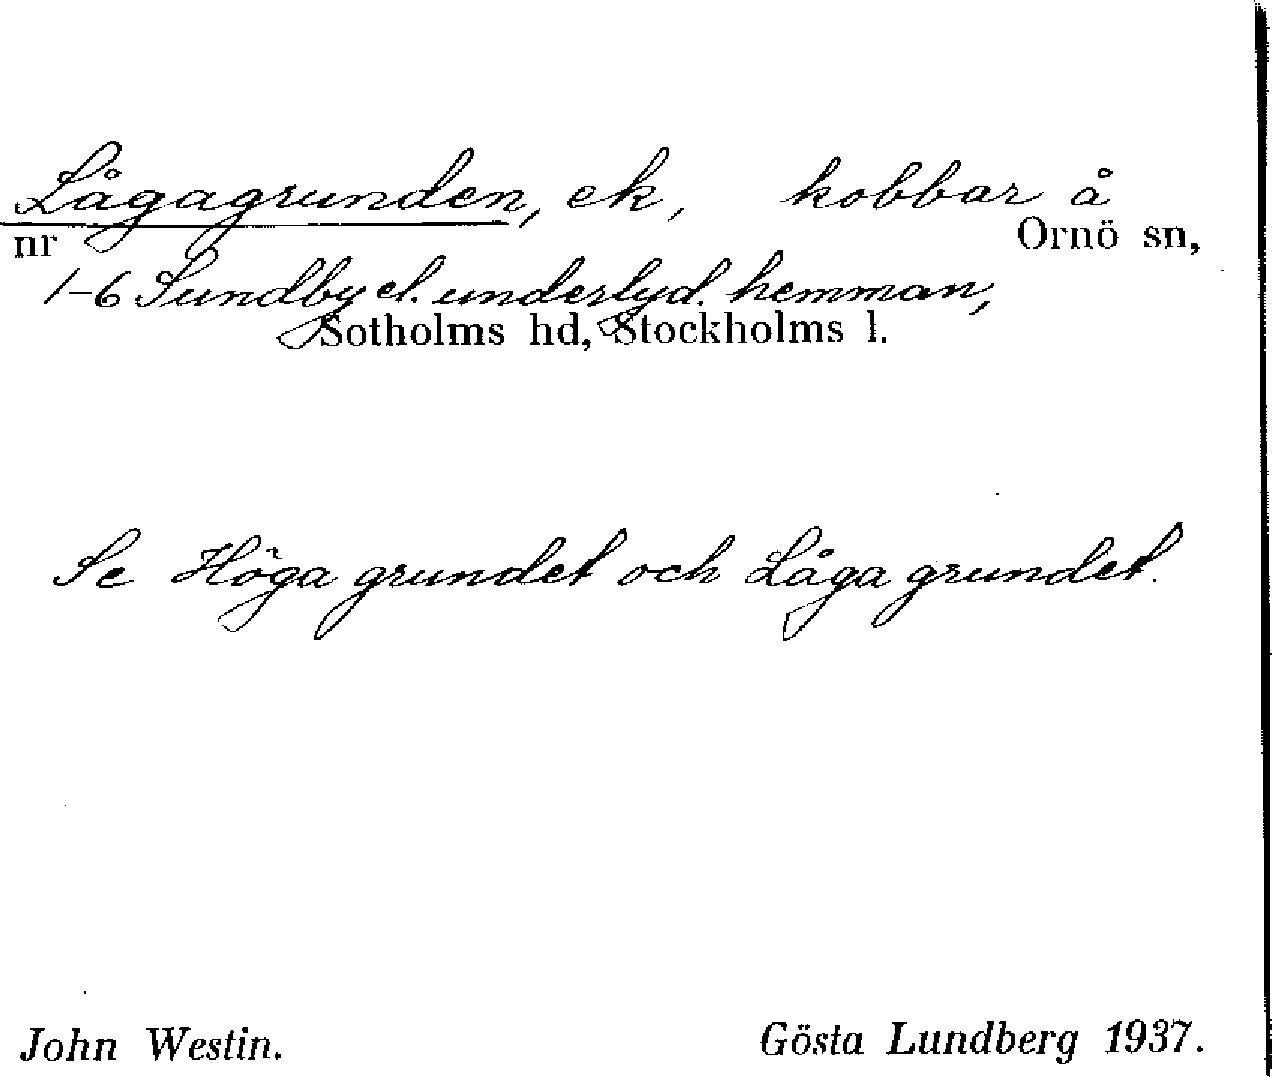 Lågagrunden, ek, kobbar å
nr Ornö sn,
1-6 Sundby el. underlyd. hemman,
Sotholms hd, Stockholms l.
Se Höga grundet och Låga grundet.
John Westin. Gösta Lundberg 1937.